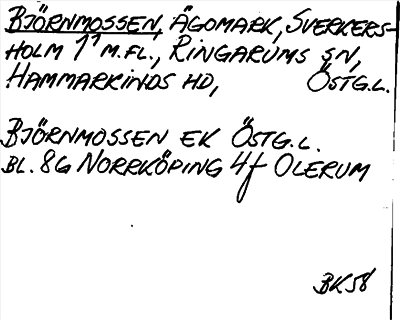 BJÖRNMOSSEN, ÄGOMARK, SVERKERS-
HOLM 1¹ M.FL., RINGARUMS SN,
HAMMARKINDS HD, ÖSTG.L.
BJÖRNMOSSEN EK ÖSTG.L.
BL. 8G NORRKÖPING 4f OLERUM
BK58